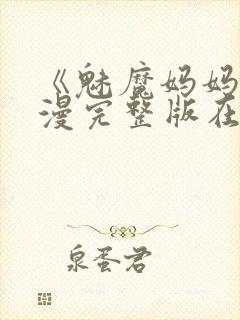 《魅魔妈妈
漫完整版在
泉蛋君